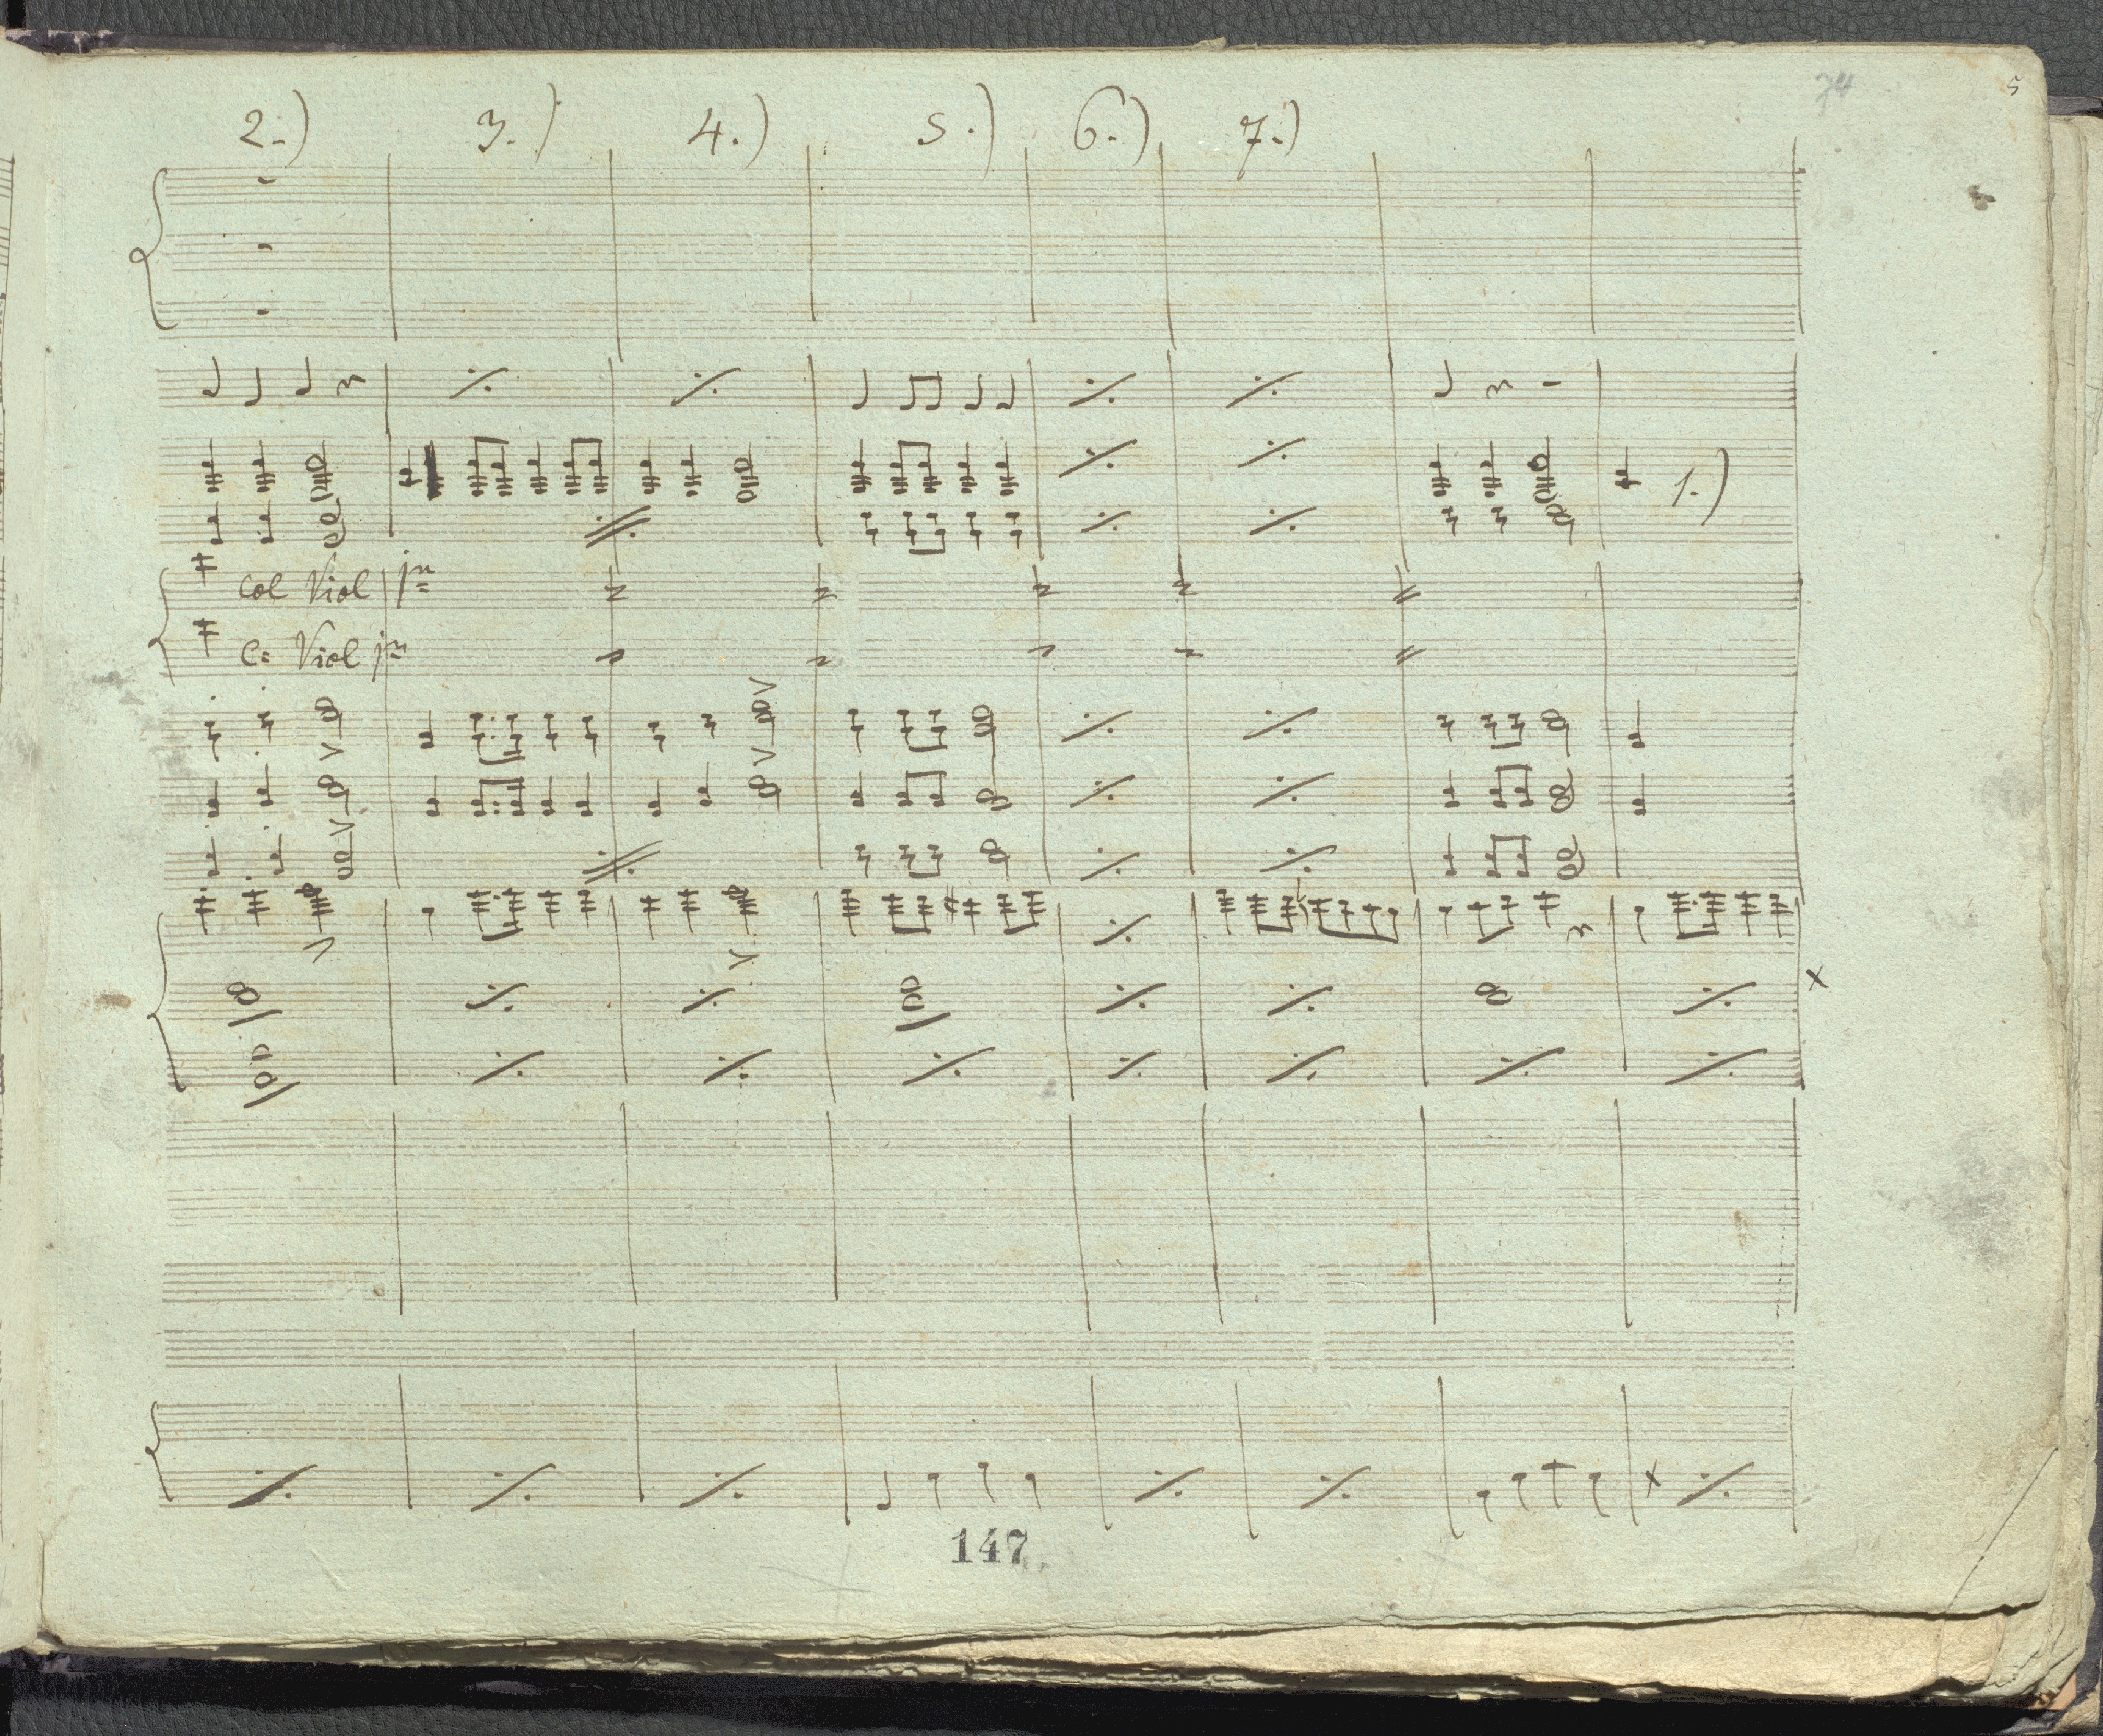 74
5
2.) 3.) 4.) 5.) 6.) 7.)
1.)
Col Viol
C: Viol
147